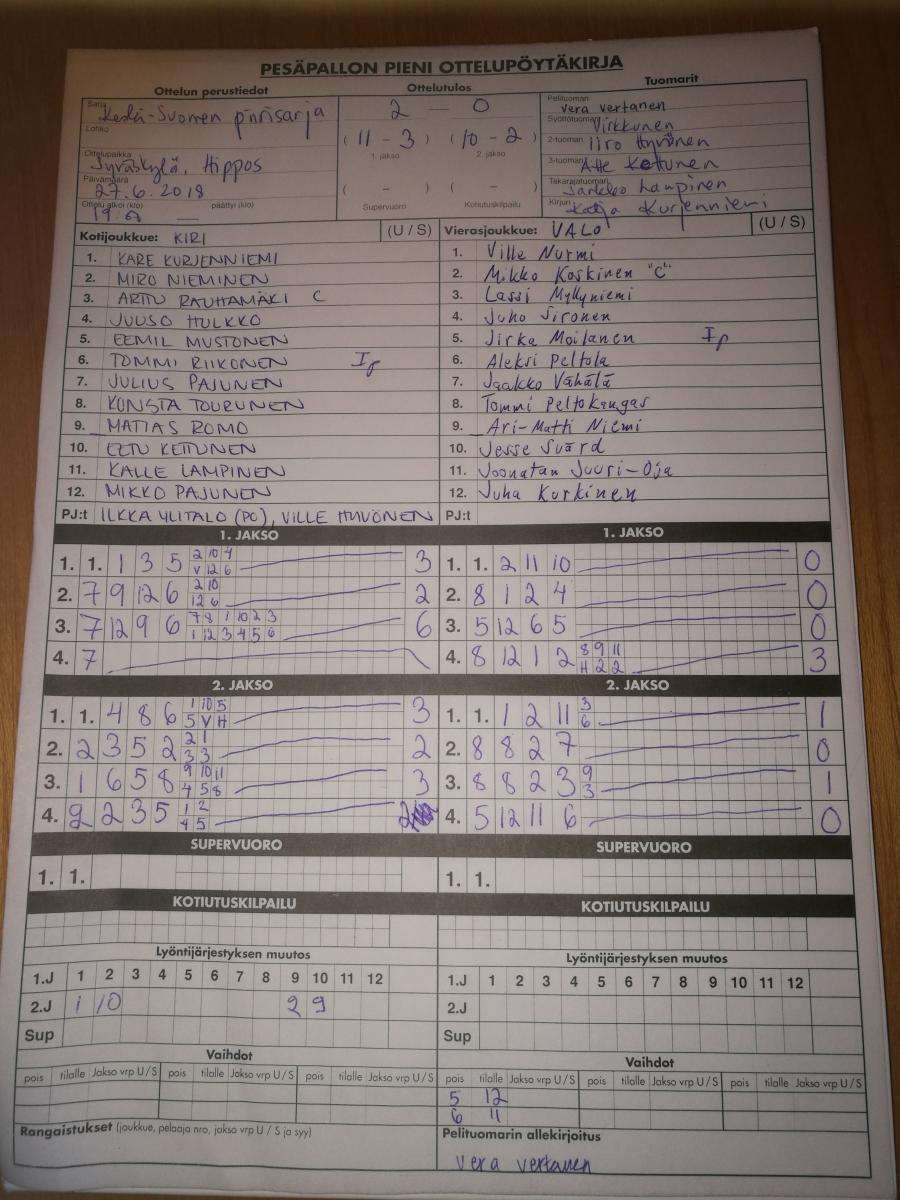 PESÄPALLON PIENI OTTELUPÖYTÄKIRJA
Ottelun perustiedot Ottelutulos Tuomarit
Sarja Keski-Suomen piirisarja
Lohko
Ottelupaikka Jyväskylä, Hippos
Päivämäärä 27.6.2018
Ottelu alkoi (klo) päättyi (klo)
2 — 0
( 11 - 3 ) ( 10 - 2 )
1. jakso 2. jakso
( - ) ( - )
Supervuoro Kotiutuskilpailu
Pelituomari vera vertanen
Syöttötuomari Virkkunen
2-tuomari Iiro Hyvönen
3-tuomari Atte Kettunen
Takarajatuomari Jarkko Lampinen
Kirjuri Katja Kurjenniemi
Kotijoukkue: KIRI (U / S)
1. KARE KURJENNIEMI
2. MIRO NIEMINEN
3. ARTTU RAUHAMÄKI C
4. JUUSO HULKKO
5. EEMIL MUSTONEN
6. TOMMI RIIKONEN Ip
7. JULIUS PAJUNEN
8. KONSTA TOURUNEN
9. MATIAS ROMO
10. EETU KETTUNEN
11. KALLE LAMPINEN
12. MIKKO PAJUNEN
PJ:t ILKKA YLITALO (PO), VILLE HYVÖNEN
Vierasjoukkue: VALO (U / S)
1. Ville Nurmi
2. Mikko Koskinen "C"
3. Lassi Myllyniemi
4. Juho Sironen
5. Jirka Moilanen Ip
6. Aleksi Peltola
7. Jaakko Vähälä
8. Tommi Peltokangas
9. Ari-Matti Niemi
10. Jesse Svärd
11. Joonatan Juuri-Oja
12. Juha Korkinen
PJ:t
1. JAKSO
1. 1. 1 3 5 2 10 4 3
V 12 6
2. 7 9 12 6 2 10 2
12 6
3. 7 12 9 6 7 8 1 10 2 3 6
1 12 3 4 5 6
4. 7
1. JAKSO
1. 1. 2 11 10 0
2. 8 1 2 4 0
3. 5 12 6 5 0
4. 8 12 1 2 8 9 11 3
H 2 2
2. JAKSO
1. 1. 4 8 6 1 10 5 3
5 V H
2. 2 3 5 2 2 1 2
3 3
3. 1 6 5 8 9 10 11 3
4 5 8
4. 9 2 3 5 1 2 2
4 5
2. JAKSO
1. 1. 1 2 11 3 1
6
2. 8 8 2 7 0
3. 8 8 2 3 9 1
3
4. 5 12 11 6 0
SUPERVUORO SUPERVUORO
1. 1. 1. 1.
KOTIUTUSKILPAILU KOTIUTUSKILPAILU
Lyöntijärjestyksen muutos
1.J 1 2 3 4 5 6 7 8 9 10 11 12
2.J 1 10 2 9
Sup
Lyöntijärjestyksen muutos
1.J 1 2 3 4 5 6 7 8 9 10 11 12
2.J
Sup
Vaihdot
pois tilalle Jakso vrp U / S pois tilalle Jakso vrp U / S pois tilalle Jakso vrp U / S
Rangaistukset (joukkue, pelaaja nro, jakso vrp U / S ja syy)
Vaihdot
pois tilalle Jakso vrp U / S pois tilalle Jakso vrp U / S pois tilalle Jakso vrp U / S
5 12
6 11
Pelituomarin allekirjoitus
vera vertanen